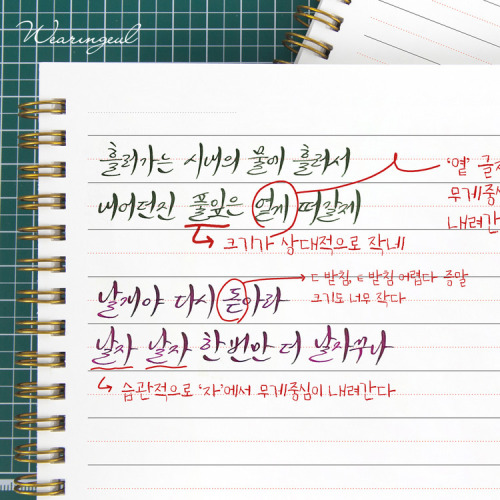 Wearingeul
흘러가는 시내의 물에 흘러서
'옅'
무게중심
내려간
내어던진 풀잎은 옅게 떠갈제
크기가 상대적으로 작네
ㄷ 받침, ㅌ 받침 어렵다 증말
크기도 너무 작다
날개야 다시 돋아라
날자 날자 한번만 더 날자꾸나
습관적으로 '자'에서 무게중심이 내려간다